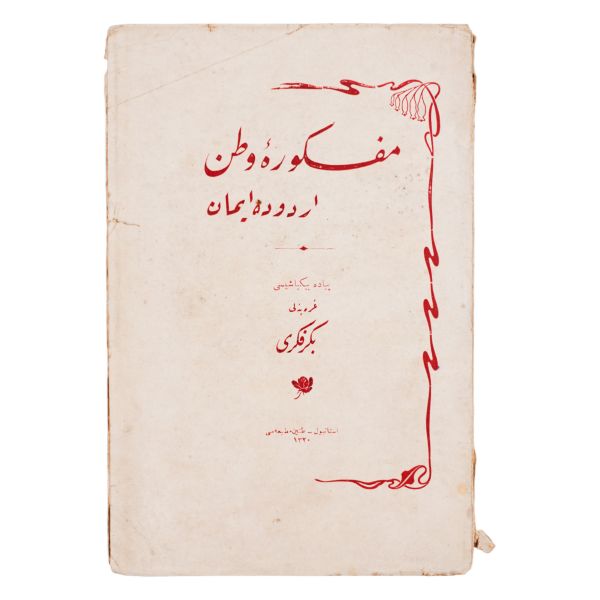 مفكورهٔ وطن
اردوده ایمان
پیاده بیكباشیسی
غره‌بنه‌لی
بكر فكری
استانبول – طنین مطبعه‌سی
١٣٣٠